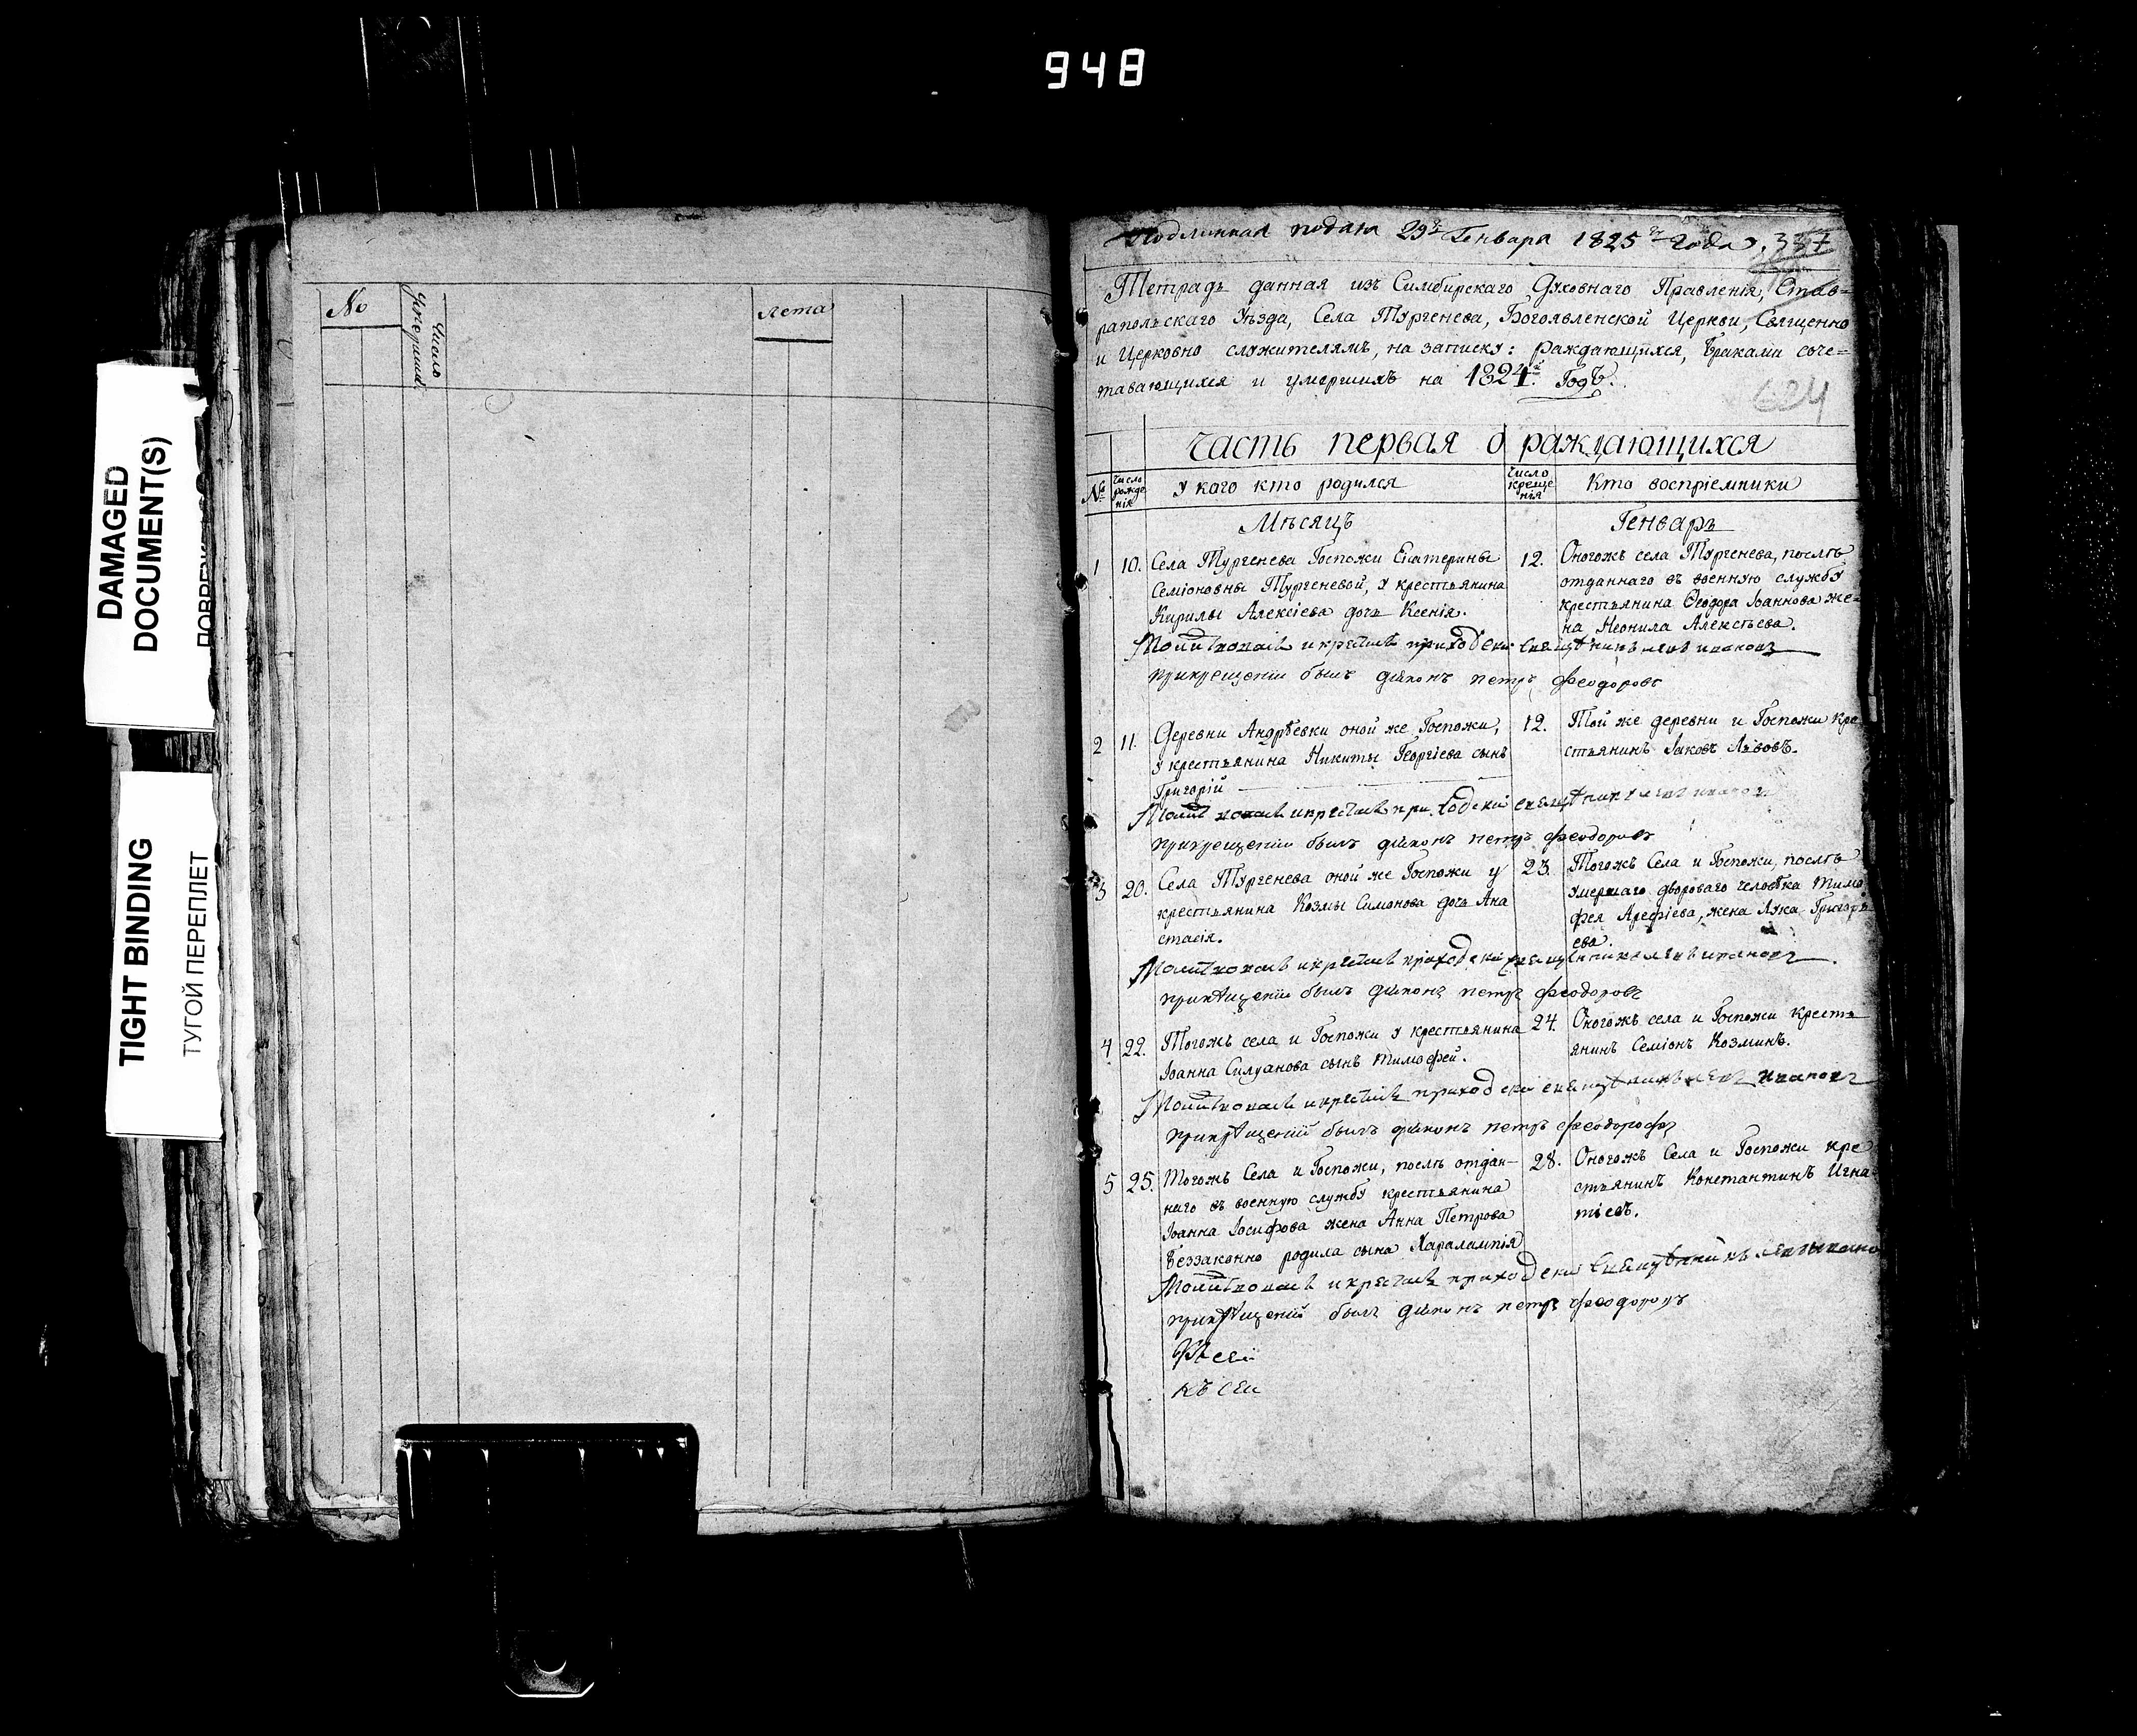 948
DAMAGED
DOCUMENT(S)
TIGHT BINDING
ТУГОЙ ПЕРЕПЛЕТ
№
Число
Умершихъ
лета
Подлинная подана 29го Генваря 1825го Года.
337
Тетрадь данная изъ Симбирскаго Духовнаго Правленія, Став=
рапольскаго Уѣзда, Села Тургенева, Богоявленской Церкви, Священно
и Церковно служителямъ, на записку: раждающихся, браками соче=
тавающихся и умершихъ на 1824й Годъ.
624
Часть первая о раждающихся
№
число рожденія
У каго кто родился
число крещенія
Кто воспріемники
Мѣсяцъ Генварь
1 10. Села Тургенева Госпожи Екатерины
Семіоновны Тургеневой, у крестьянина
Кирилы Алексіева дочь Ксенія.
12. Оногожъ села Тургенева, послѣ
отданнаго въ военную службу
крестьянина Ѳеодора Іоаннова же=
на Неонила Алексѣева.
Молитвовалъ и крестилъ приходской священникъ левъ ивановъ
при крещеніи былъ діяконъ петръ феодоровъ
2 11. Деревни Андрѣевки оной же Госпожи,
у крестьянина Никиты Георгіева сынъ
Григорій
12. Той же деревни и Госпожи кре
стьянинъ Іаковъ Львовъ.
Молитвовалъ и крестилъ приходской священникъ левъ ивановъ
при крещеніи былъ діяконъ петръ феодоровъ
3 20. Села Тургенева оной же Госпожи у
крестьянина Козмы Симонова дочь Ана
стасія.
23. Тогожъ Села и Госпожи, послѣ
умершаго двороваго человѣка Тимо
фея Арефіева, жена Лука Григорь
ева.
Молитвовалъ и крестилъ приходской священникъ левъ ивановъ
при крещеніи былъ діяконъ петръ феодоровъ
4 22. Тогожъ села и Госпожи у крестьянина
Іоанна Силуанова сынъ Тимофей.
24. Оногожъ села и Госпожи кресть
янинъ Семіонъ Козминъ.
Молитвовалъ и крестилъ приходской священникъ левъ ивановъ
при крещеній былъ діяконъ петръ феодорофъ
5 25. Тогожъ Села и Госпожи, послѣ отдан-
наго въ военную службу крестьянина
Іоанна Іосифова жена Анна Петрова
беззаконно родила сына Харалампія
28. Оногожъ Села и Госпожи кре
стьянинъ Константинъ Игна
тіевъ.
Молитвовалъ и крестилъ приходской священникъ левъ ивано
при крещеній былъ діяконъ петръ феодоровъ
къ сеи